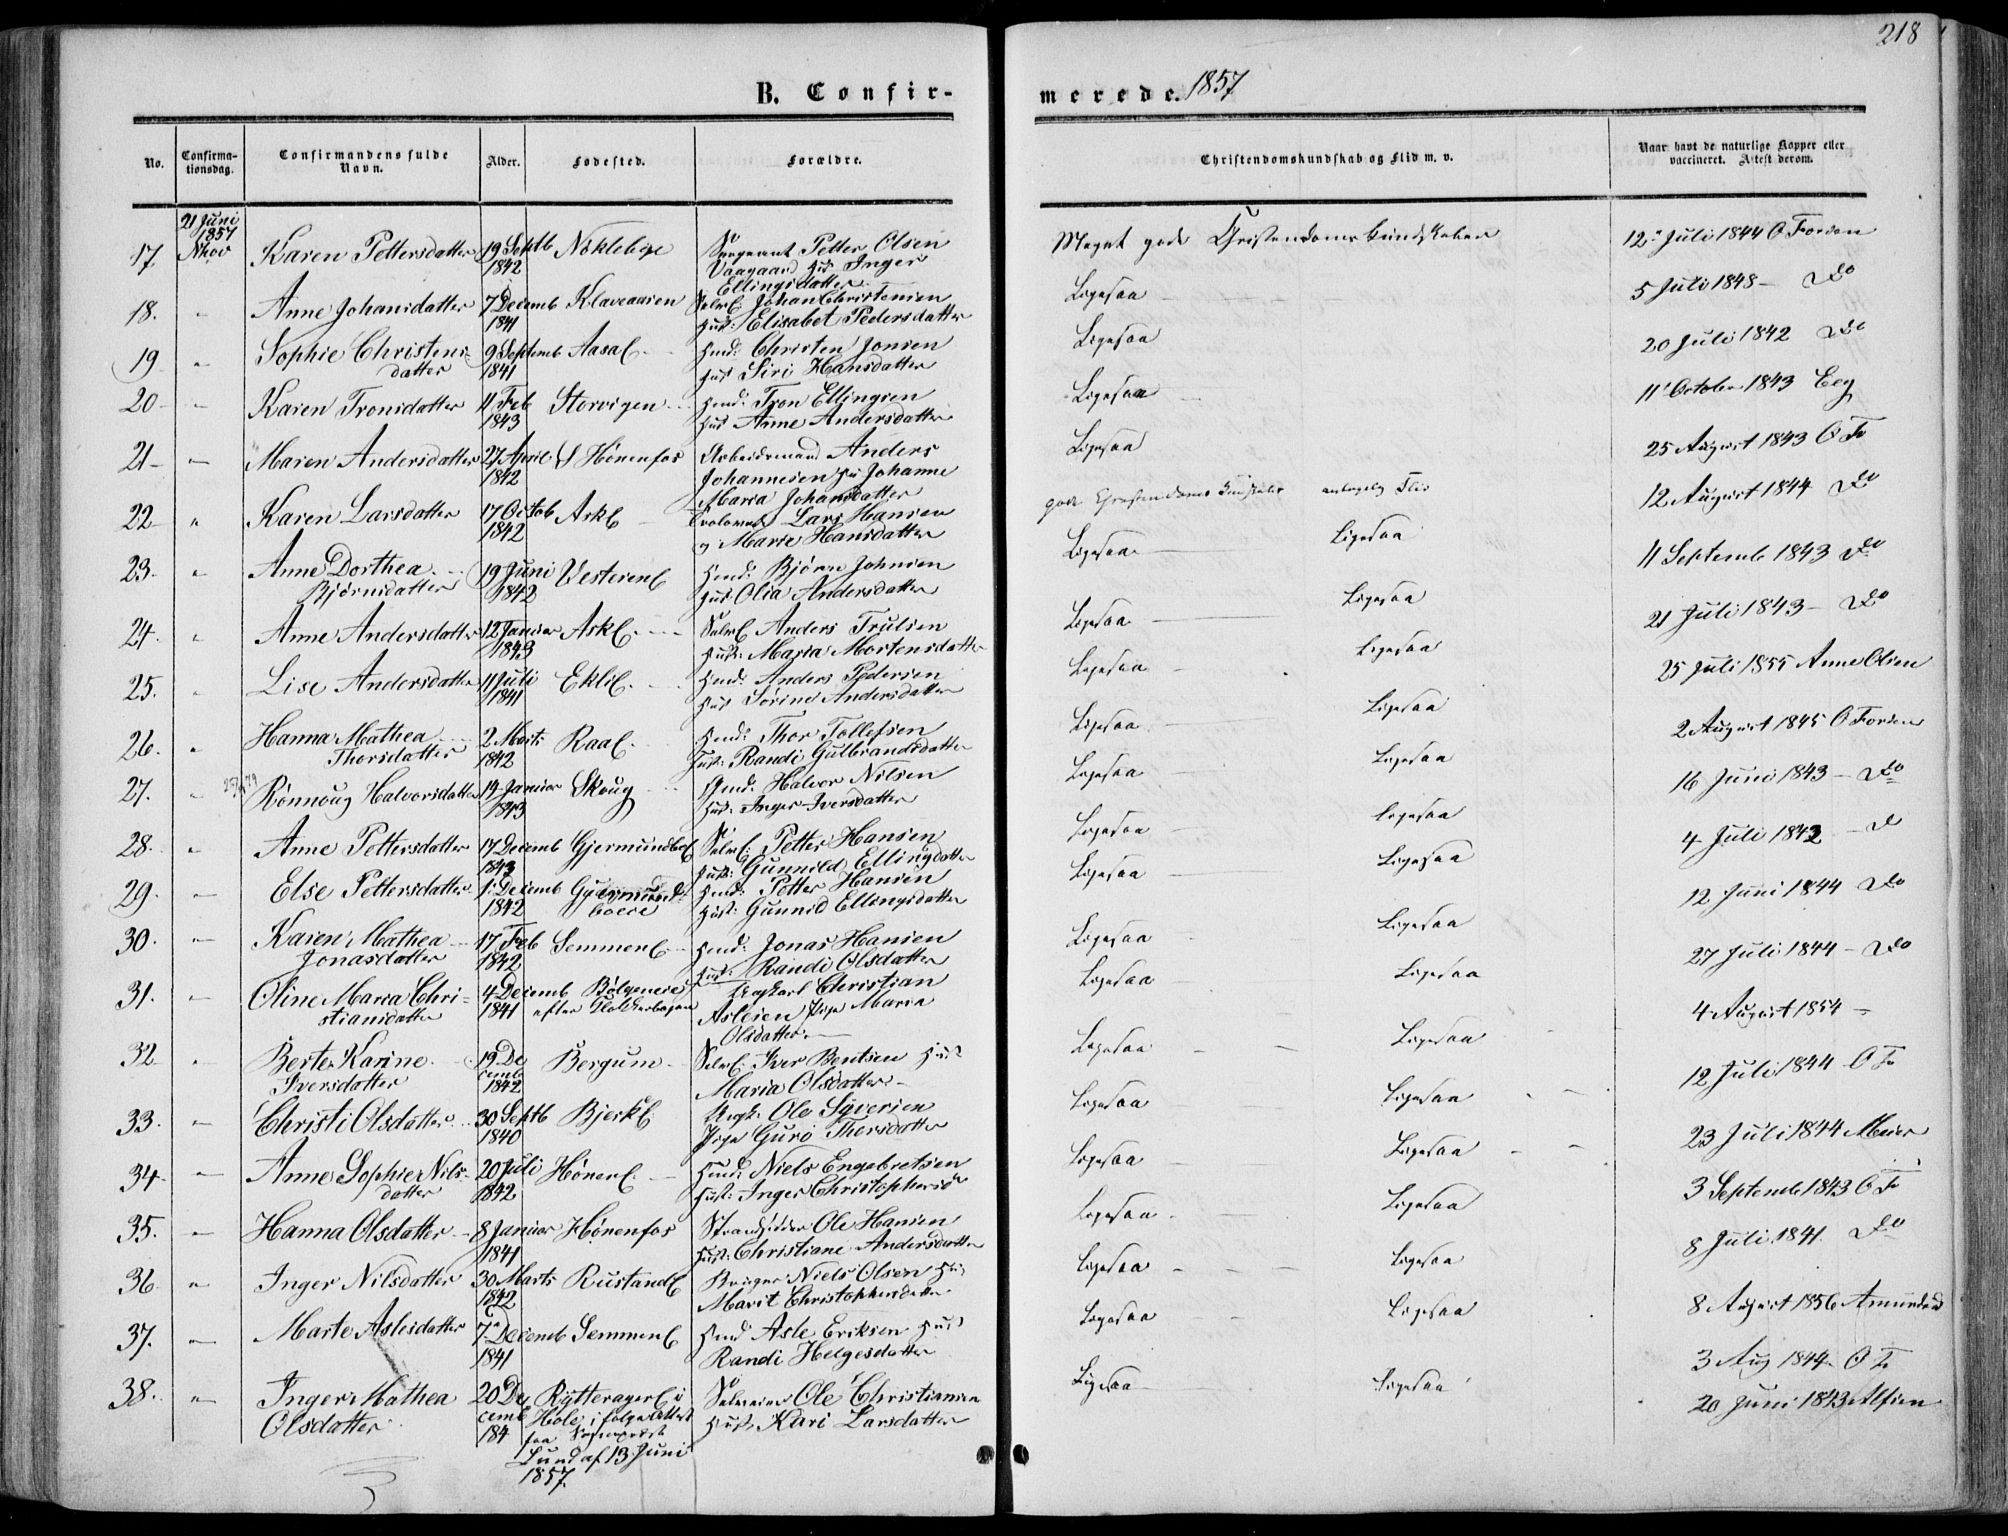 218
B. Confir-
merede. 1857
No.
Confirma-
tionsdag.
Confirmandens fulde
Navn.
Alder.
Fødested.
Forældre.
Christendomskundskab og Flid m. v.
Naar havt de naturlige Kopper eller
vaccineret. Attest derom.
21 Juni
1857
17. Karen Pettersdatter 19 Septb 1842 Petter Olsen
Inger
Ellingsdatter
Meget gode Christendoms Kundskaber
12 Juli 1844 O Forsen
18. " Anne Johansdatter 7 Decemb 1841 Klaveaasen Johan Christensen
Elisabet Pedersdatter
Ligesaa
5 Juli 1848 - Do
19 " Sophie Christens-
datter 9 Septemb 1841 Aasal Christen Jonsen
Siri Hansdatter
Ligesaa
20 Juli 1842 Do
20 - " Karen Tronsdatter 11 Feb 1843 Storvigen Tron Ellingsen
Anne Andersdatter
Ligesaa
11 October 1843 Eeg
21 - " Maren Andersdatter 27 April 1842 Hønenfos Arbeidsmand Anders
Johannesen Johanne
Maria Johansdatter
Ligesaa
25 August 1843 O Fo
22 " Karen Larsdatter 17 Octob 1842 Ask Lars Hansen
Marie Hansdatter
gode Christendoms Kundskaber Flid
12 August 1844 Do
23. " Anne Dorthea
Bjørnsdatter 19 Juni 1842 Vesteren Bjørn Johnsen
Olia Andersdatter
Ligesaa Ligesaa
11 Septemb 1843 Do
24. " Anne Andersdatter 12 Januar 1843 Ask Anders Trulsen
Maria Mortensdatter
Ligesaa Ligesaa
21 Juli 1843 - Do
25. " Lise Andersdatter 11 Juli 1841 Ekli Anders Pedersen
Sørine Andersdatter
Ligesaa Ligesaa
25 Juli 1855 Anne Olsen
26. " Hanna Mathea
Thorsdatter 2 Marts 1842 Raa Thor Tollefsen
Randi Gulbrandsdatter
Ligesaa Ligesaa
2 August 1845 O Forsen
27. " Rønnoug Halvorsdatter 14 Januar 1843 Skoug Halvor Nilsen
Inger Iversdatter
Ligesaa Ligesaa
16 Juni 1843 - Do
28. " Anne Pettersdatter 17 Decemb 1843 Gjermundbo Petter Hansen
Gunnild Ellingsdatter
Ligesaa Ligesaa
4 Juli 1842 - D
29. " Else Pettersdatter 1 Decemb 1842 Petter Hansen
Gunnild Ellingsdatter
Ligesaa Ligesaa
12 Juni 1844 Do
30. " Karen Mathea
Jonasdatter 17 Feb 1842 Semmen Jonas Hansen
Randi Olsdatter
Ligesaa Ligesaa
27 Juli 1844 - Do
31. " Oline Maria Chri-
stiansdatter 4 Decemb 1841 Christian
Aslesen Pige Maria
Olsdatter
Ligesaa Ligesaa
4 August 1854 -
32 " Berte Karine
Iversdatter 19 De
cemb
1842 Bergum Iver Bentsen
Maria Olsdatter
Ligesaa Ligesaa
12 Juli 1844 O Fo
33. " Christi Olsdatter 30 Septb 1840 Bjerke Ole Syversen
Pige Guro Thorsdatter
Ligesaa Ligesaa
23 Juli 1844 Meier
34. " Anne Sophie Nils-
datter 20 Juli 1842 Høner Niels Engebretsen
Inger Christophersd
Ligesaa Ligesaa
3 Septemb 1843 O Fo
35. " Hanna Olsdatter 8 Januar 1841 Hønenfos Strandsidder Ole Hansen
Christiane Andersdatter
Ligesaa Ligesaa
8 Juli 1841 Do
36. " Inger Nilsdatter 30 Marts 1842 Rustand Niels Olsen
Marit Christophersdatter
Ligesaa Ligesaa
8 August 1856
37. " Marte Aslesdatter 7 Decemb 1841 Semmen Asle Eriksen
Randi Helgesdatter
Ligesaa Ligesaa
3 Aug 1844 O Fo
38. " Inger Mathea
Olsdatter 20 De
cemb
184 Rytterager i
Hole ifølge Attest
fra
Lund af 13 Juni
1857. Ole Christiansen
Kari Larsdatter
Ligesaa Ligesaa
20 Juni 1843